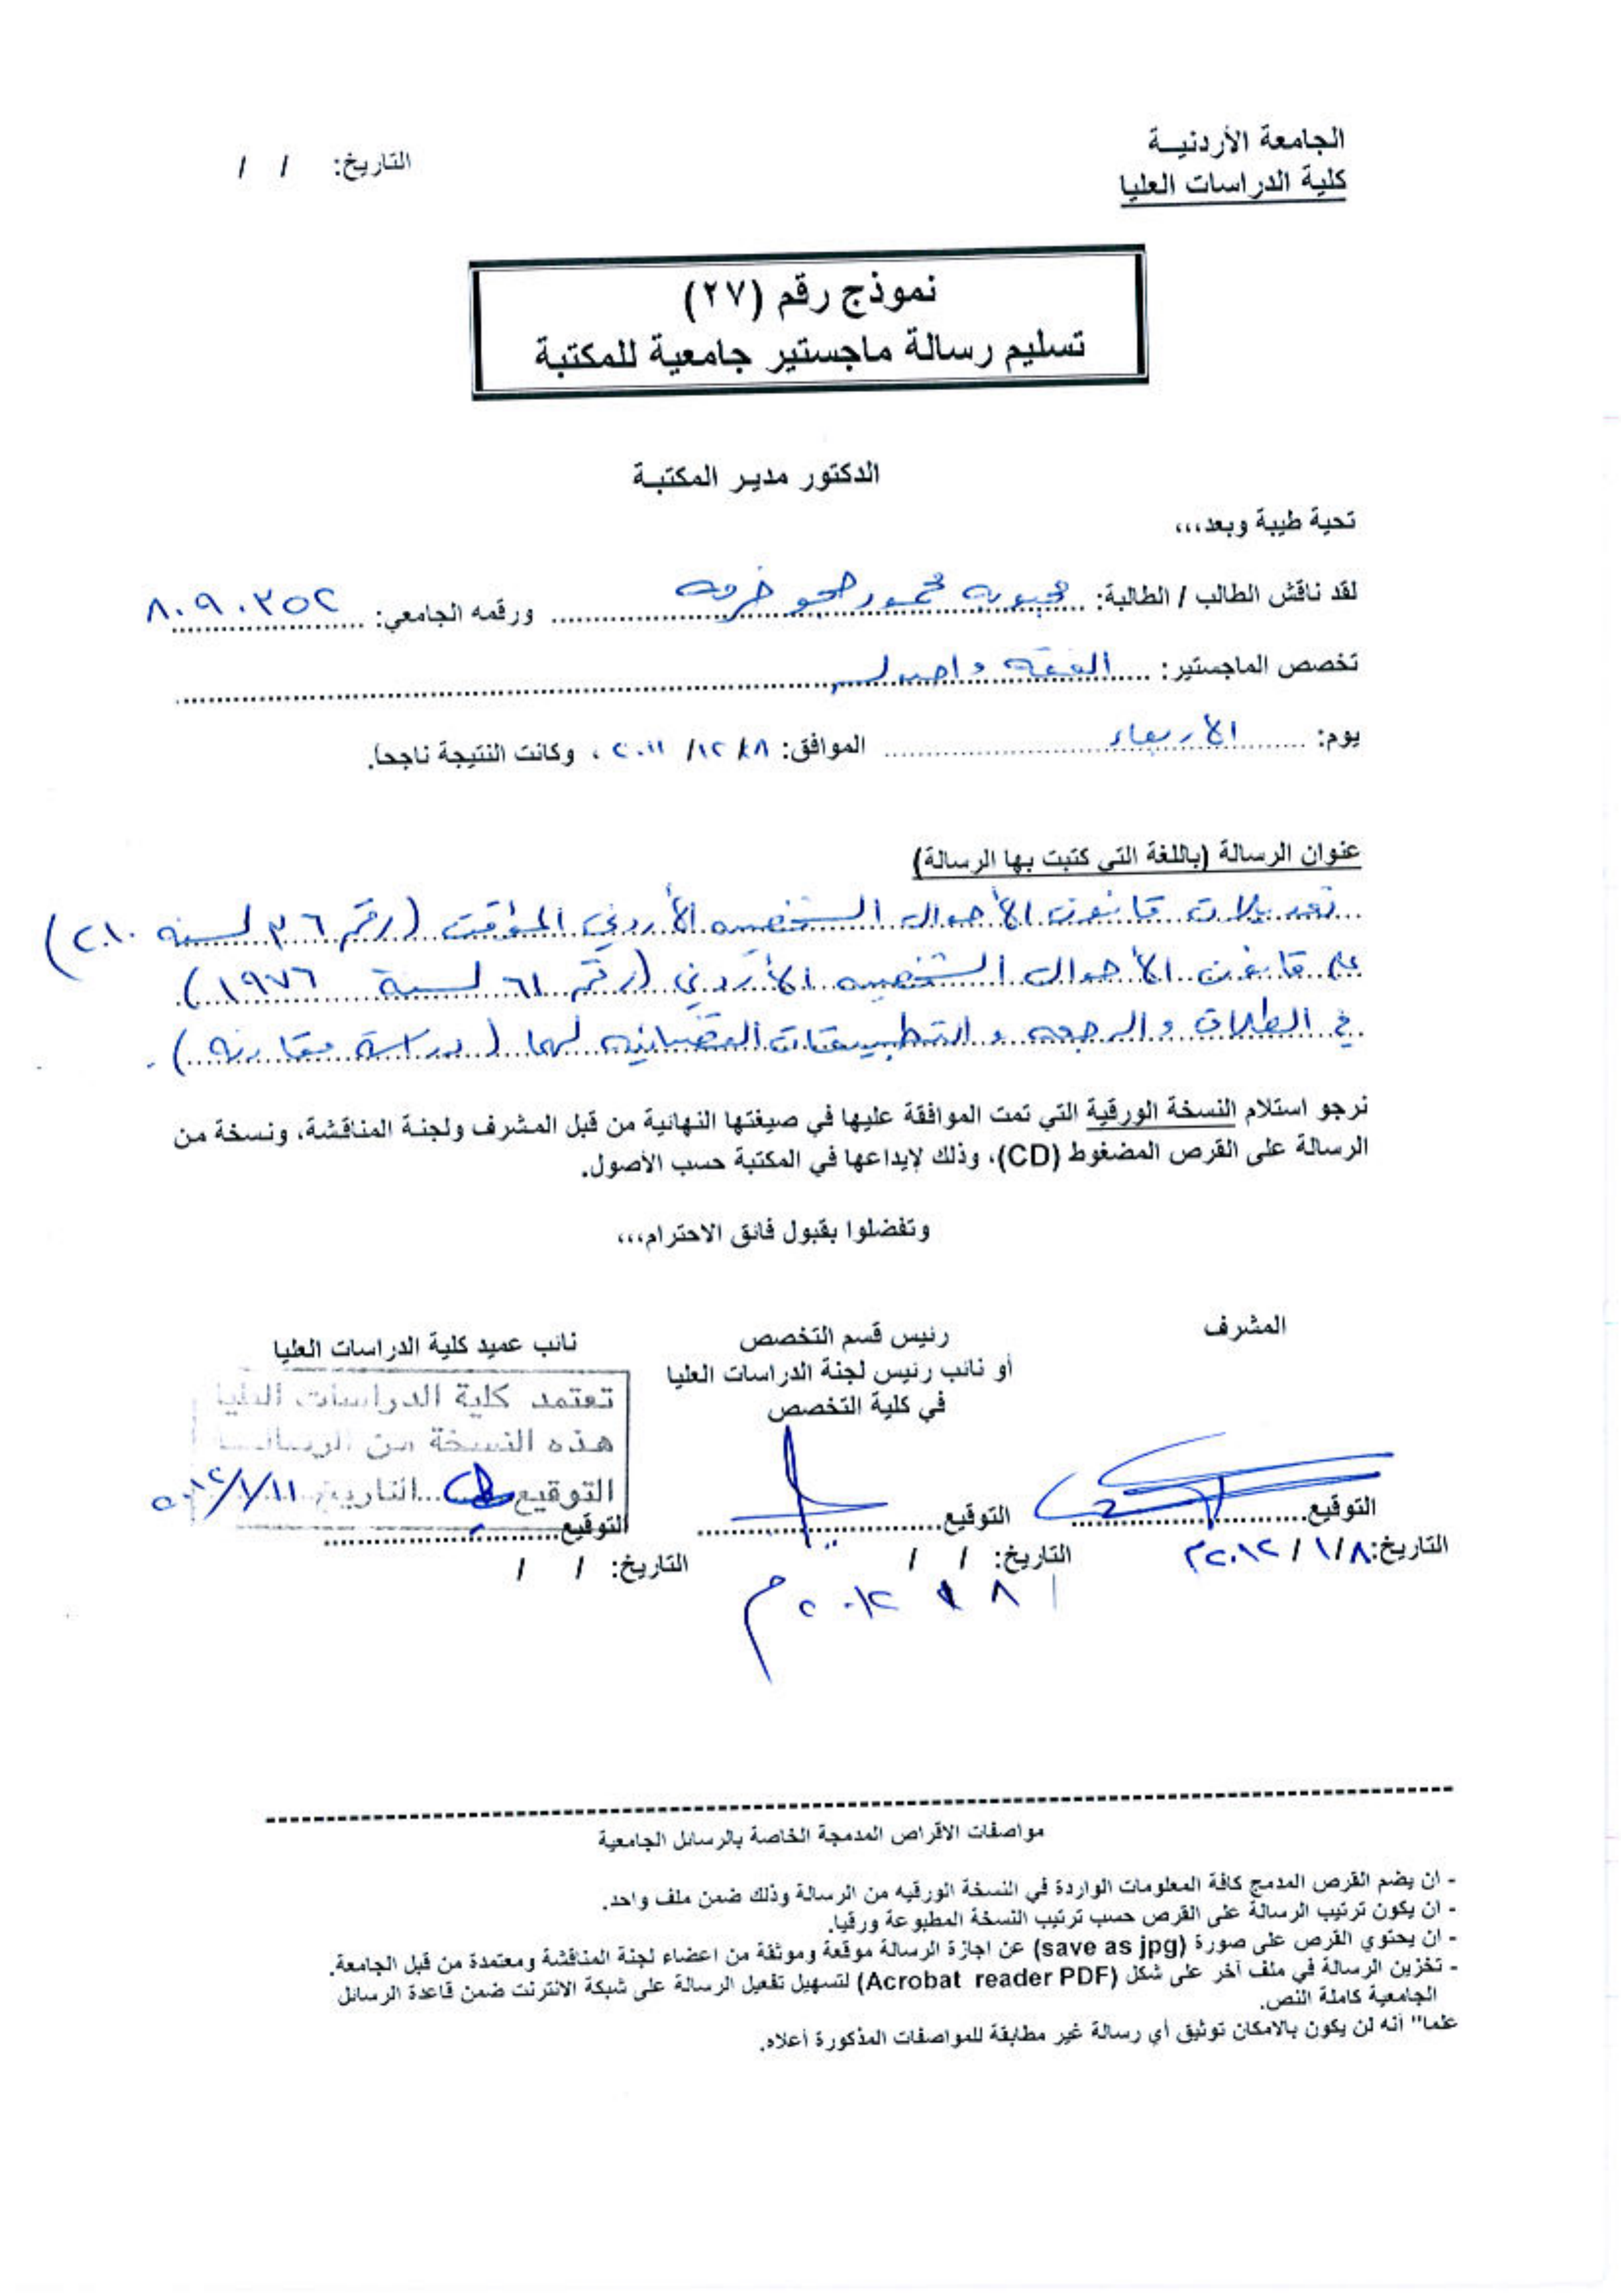 الجامعة الأردنيــة
كلية الدراسات العليا
التاريخ: / /
نموذج رقم (٢٧)
تسليم رسالة ماجستير جامعية للمكتبة
الدكتور مدير المكتبـة
تحية طيبة وبعد،،،
لقد ناقش الطالب / الطالبة: محمود ورقمه الجامعي: ٨٠٩٠٣٥٢
تخصص الماجستير: الفقه و اصوله
يوم: الأربعاء الموافق: ٨/ ١٢/ ٢٠١١ ، وكانت النتيجة ناجحاً.
عنوان الرسالة (باللغة التي كتبت بها الرسالة)
تعديلات قانون الأحوال الشخصيه الأردني المؤقت (رقم ٣٦ لسنه ٢٠١٠)
على قانون الأحوال الشخصيه الأردني (رقم ٦١ لسنة ١٩٧٦)
في الطلاق والرجعه والتطبيقات القضائيه لهما (دراسة مقارنه).
نرجو استلام النسخة الورقية التي تمت الموافقة عليها في صيغتها النهائية من قبل المشرف ولجنة المناقشة، ونسخة من
الرسالة على القرص المضغوط (CD)، وذلك لإيداعها في المكتبة حسب الأصول.
وتفضلوا بقبول فائق الاحترام،،،
المشرف
التوقيع
التاريخ: ٨/ ١/ ٢٠١٢م
رئيس قسم التخصص
أو نائب رئيس لجنة الدراسات العليا
في كلية التخصص
التوقيع
التاريخ: / /
٨ ١ ٢٠١٢م
نائب عميد كلية الدراسات العليا
تعتمد كلية الدراسات العليا
هذه النسخة من الرسالة
التوقيع التاريخ ١١/١/٢٠١٢
التوقيع
التاريخ: / /
مواصفات الاقراص المدمجة الخاصة بالرسائل الجامعية
- ان يضم القرص المدمج كافة المعلومات الواردة في النسخة الورقيه من الرسالة وذلك ضمن ملف واحد.
- ان يكون ترتيب الرسالة على القرص حسب ترتيب النسخة المطبوعة ورقيا.
- ان يحتوي القرص على صورة (save as jpg) عن اجازة الرسالة موقعة وموثقة من اعضاء لجنة المناقشة ومعتمدة من قبل الجامعة.
- تخزين الرسالة في ملف آخر على شكل (Acrobat reader PDF) لتسهيل تفعيل الرسالة على شبكة الانترنت ضمن قاعدة الرسائل
الجامعية كاملة النص.
علما" أنه لن يكون بالامكان توثيق أي رسالة غير مطابقة للمواصفات المذكورة أعلاه.